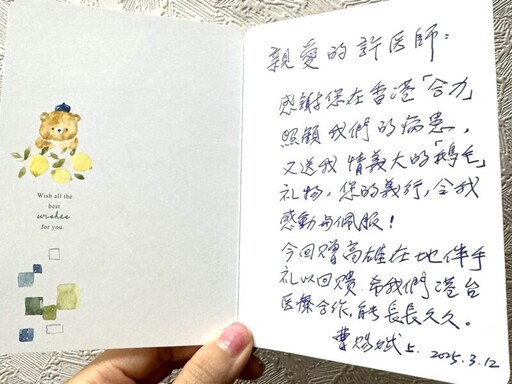 Wish all the
best
wishes
for you.
親愛的許医師：
感謝您在香港「合力」
照顧我們的病患，
又送我情義大的「鵝毛」
礼物，您的義行，令我
感動与佩服！
今回贈高雄在地伴手
礼以回饋.希我們港台
医療合作，能長長久久。
曹賜斌上. 2025.3.12